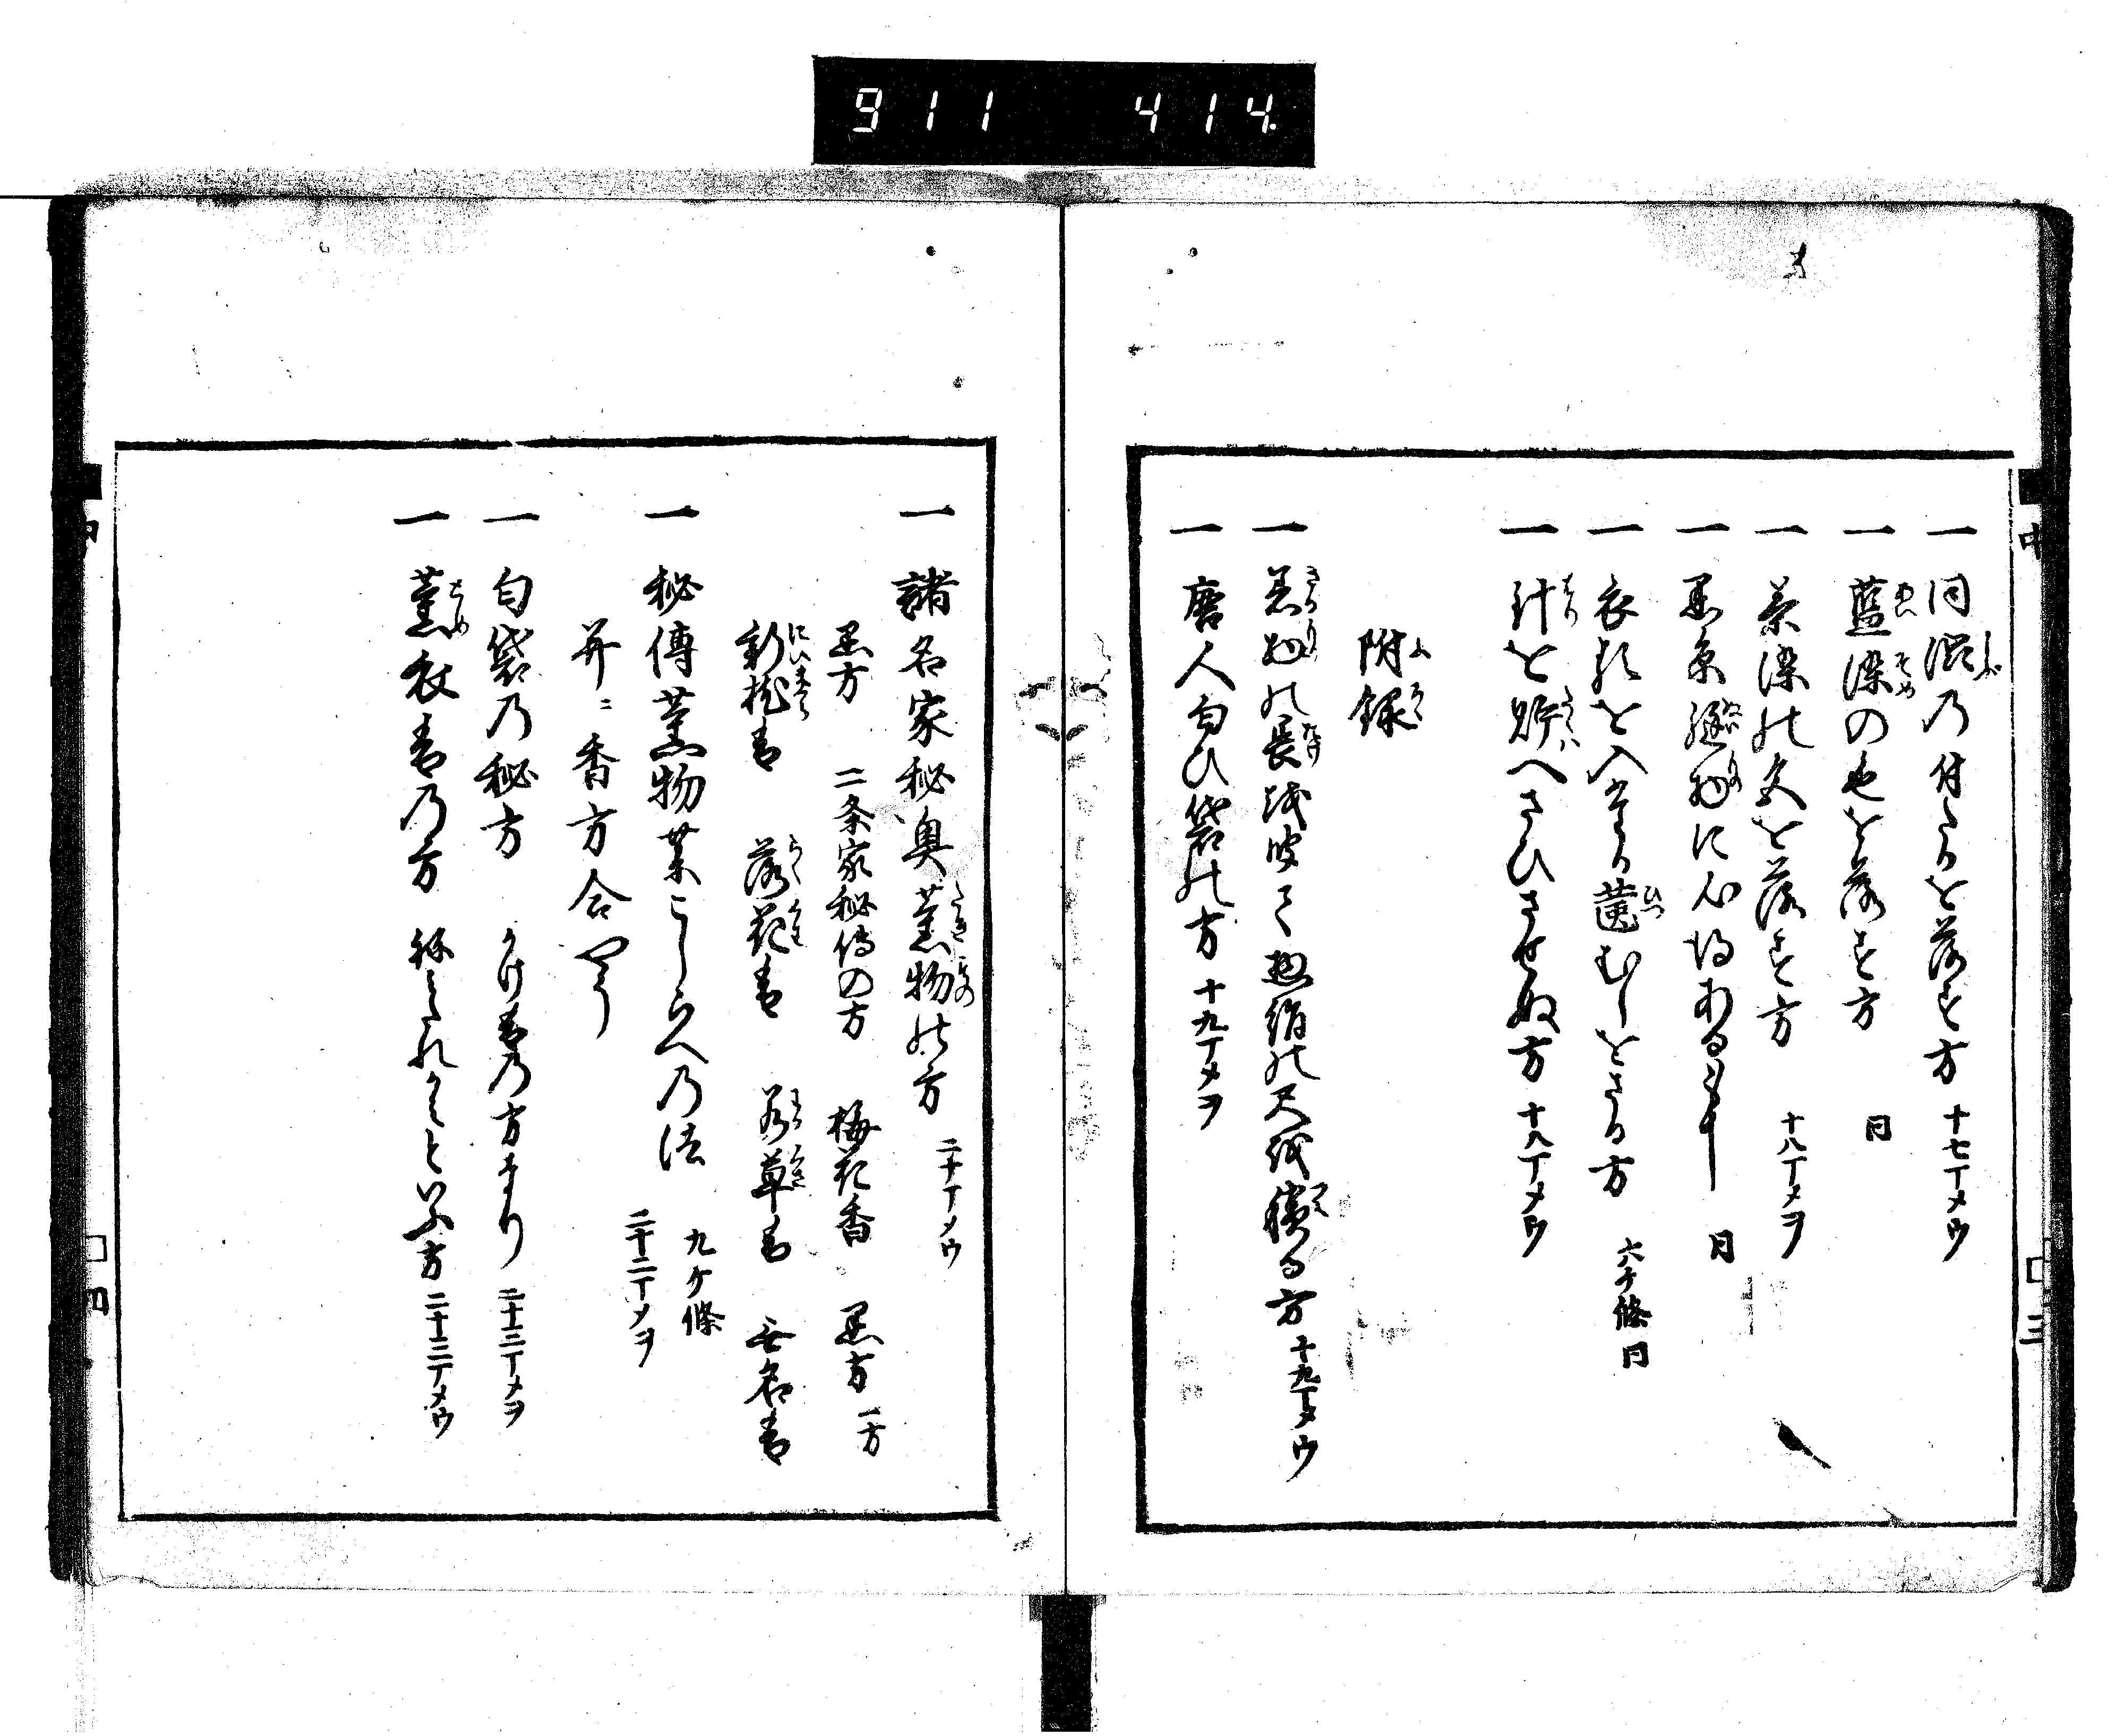 911 414
一 同澁乃付たるを落す方 十七丁メウ
一 藍染の色を落す方 同
一 茶染の文を落す方 十八丁メヲ
一 黒糸縫物に心得ある事 同
一 衣類を入たる むしをさる方 六ケ條同
一 針を貯へさひさせぬ方 十八丁メウ
附録
一 着物の長 絹の尺 積る方 十九丁メウ
一 唐人匂ひ袋の方 十九丁メヲ
中 三
一 諸名家秘奥薫物の方 二十丁メウ
黒方 二条家秘傳の方 梅花香 黒方 一方
新枕香 落花香 若草香 無名香
一 秘傳薫物業こしらへ乃法 九ケ條 二十二丁メヲ
并ニ香方合やう
一 匂袋乃秘方 かけ香乃方あり 二十三丁メヲ
一 薫衣香乃方 といふ方 二十三丁メウ
中 四